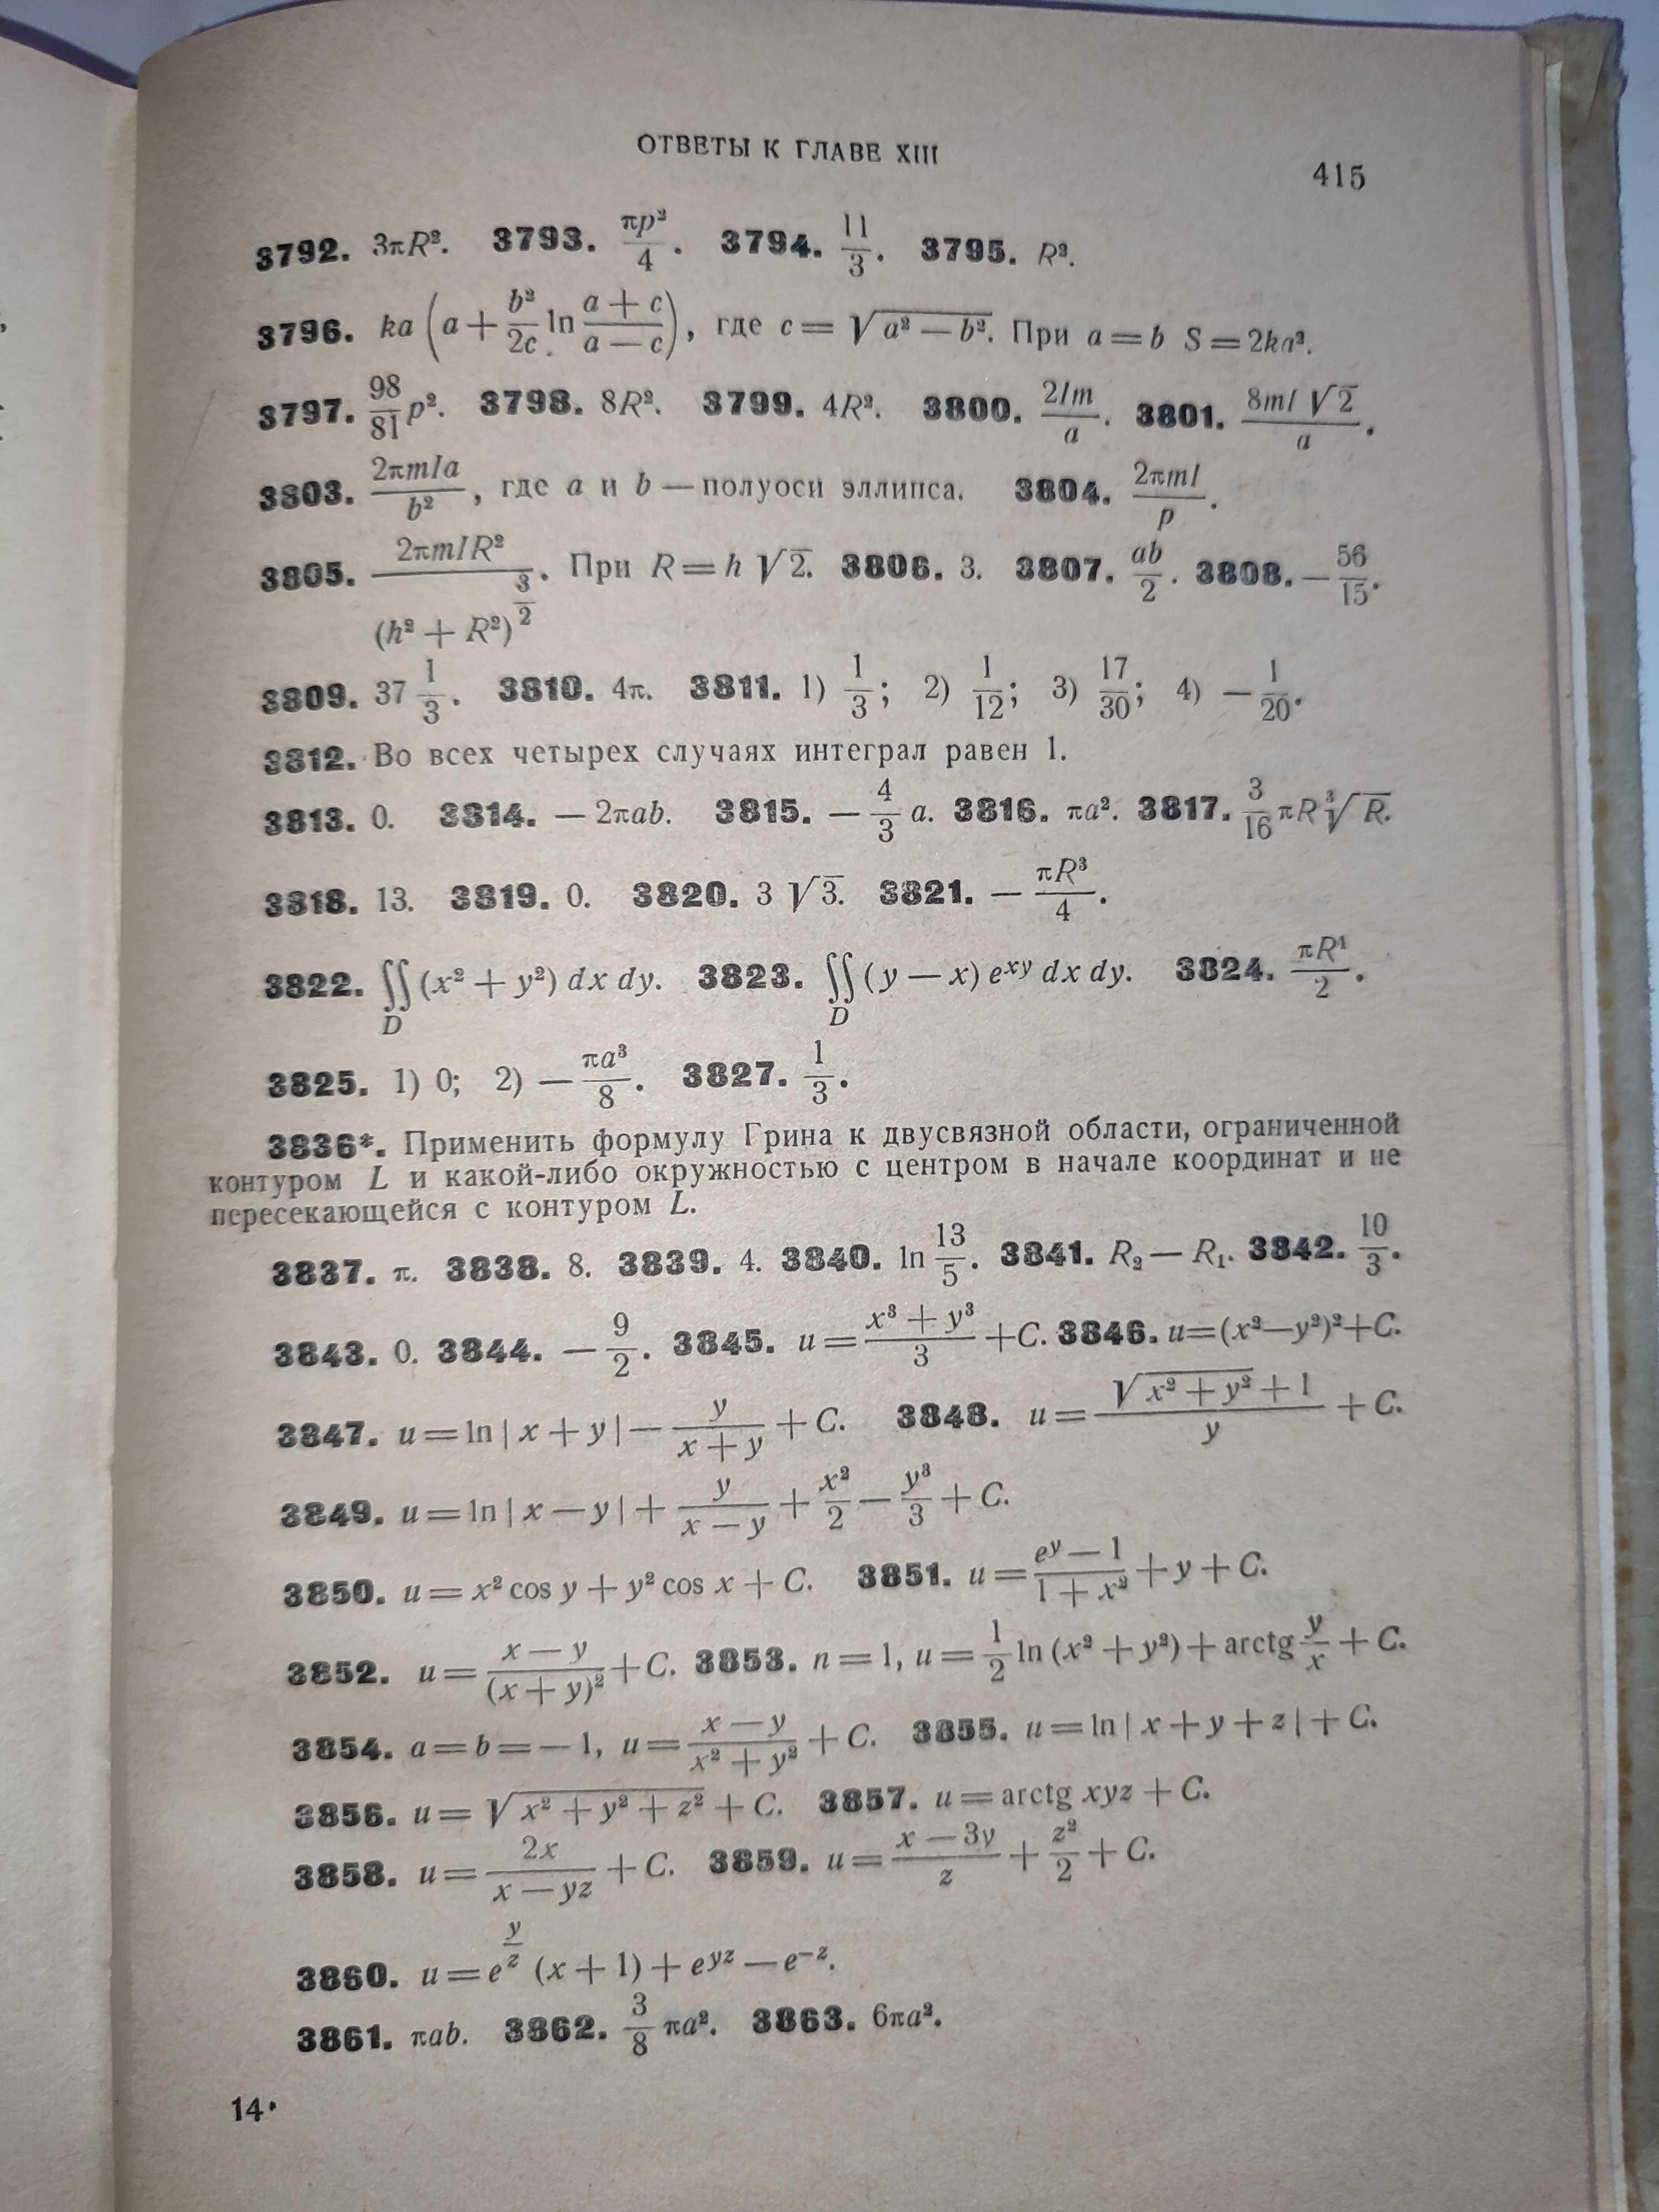 ОТВЕТЫ К ГЛАВЕ XIII
415
3792. 3πR². 3793. πp²/4. 3794. 11/3. 3795. R².
3796. ka (a + b²/2c ln (a + c)/(a − c)), где c = √(a² − b²). При a = b S = 2ka².
3797. 98/81 p². 3798. 8R². 3799. 4R². 3800. 2Im/a. 3801. 8mI √2/a.
3803. 2πmIa/b², где a и b — полуоси эллипса. 3804. 2πmI/p.
3805. 2πmIR²/(h² + R²)^(3/2). При R = h √2. 3806. 3. 3807. ab/2. 3808. − 56/15.
3809. 37 1/3. 3810. 4π. 3811. 1) 1/3; 2) 1/12; 3) 17/30; 4) − 1/20.
3812. Во всех четырех случаях интеграл равен 1.
3813. 0. 3814. − 2πab. 3815. − 4/3 a. 3816. πa². 3817. 3/16 πR ∛R.
3818. 13. 3819. 0. 3820. 3 √3. 3821. − πR³/4.
3822. ∬_D (x² + y²) dx dy. 3823. ∬_D (y − x) e^(xy) dx dy. 3824. πR⁴/2.
3825. 1) 0; 2) − πa³/8. 3827. 1/3.
3836*. Применить формулу Грина к двусвязной области, ограниченной
контуром L и какой-либо окружностью с центром в начале координат и не
пересекающейся с контуром L.
3837. π. 3838. 8. 3839. 4. 3840. ln 13/5. 3841. R₂ − R₁. 3842. 10/3.
3843. 0. 3844. − 9/2. 3845. u = (x³ + y³)/3 + C. 3846. u = (x² − y²)² + C.
3847. u = ln | x + y | − y/(x + y) + C. 3848. u = (√(x² + y²) + 1)/y + C.
3849. u = ln | x − y | + y/(x − y) + x²/2 − y³/3 + C.
3850. u = x² cos y + y² cos x + C. 3851. u = (e^y − 1)/(1 + x²) + y + C.
3852. u = (x − y)/(x + y)² + C. 3853. n = 1, u = 1/2 ln (x² + y²) + arctg y/x + C.
3854. a = b = − 1, u = (x − y)/(x² + y²) + C. 3855. u = ln | x + y + z | + C.
3856. u = √(x² + y² + z²) + C. 3857. u = arctg xyz + C.
3858. u = 2x/(x − yz) + C. 3859. u = (x − 3y)/z + z²/2 + C.
3860. u = e^(y/z) (x + 1) + e^(yz) − e^(−z).
3861. πab. 3862. 3/8 πa². 3863. 6πa².
14*